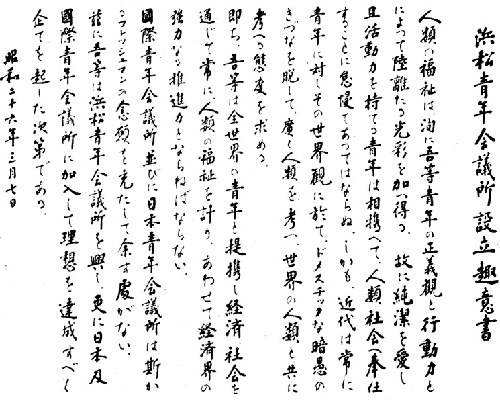 浜松青年会議所設立趣意書
人類の福祉は洵に吾等青年の正義観と行動力と
によって陸離たる光彩を加へ得る。故に純潔を愛し
且活動力を持てる青年は相携へて、人類社会へ奉仕
することに怠慢であってはならぬ。しかも、近代は常に
青年に対しその世界観に於て、ドメスチックな暗愚の
きづなを脱して、廣く人類を考へ、世界の人類と共に
考へる態度を求める。
即ち、吾等は全世界の青年と提携し経済社会を
通じて常に人類の福祉を計り、あわせて経済界の
強力なる推進力とならねばならない。
國際青年会議所並びに日本青年会議所は斯か
るフレッシュマンの念願を充たして余す處がない。
茲に吾等は浜松青年会議所を興し、更に日本及
國際青年会議所に加入して理想を達成すべく
企てを起した次第である。
昭和二十六年三月七日